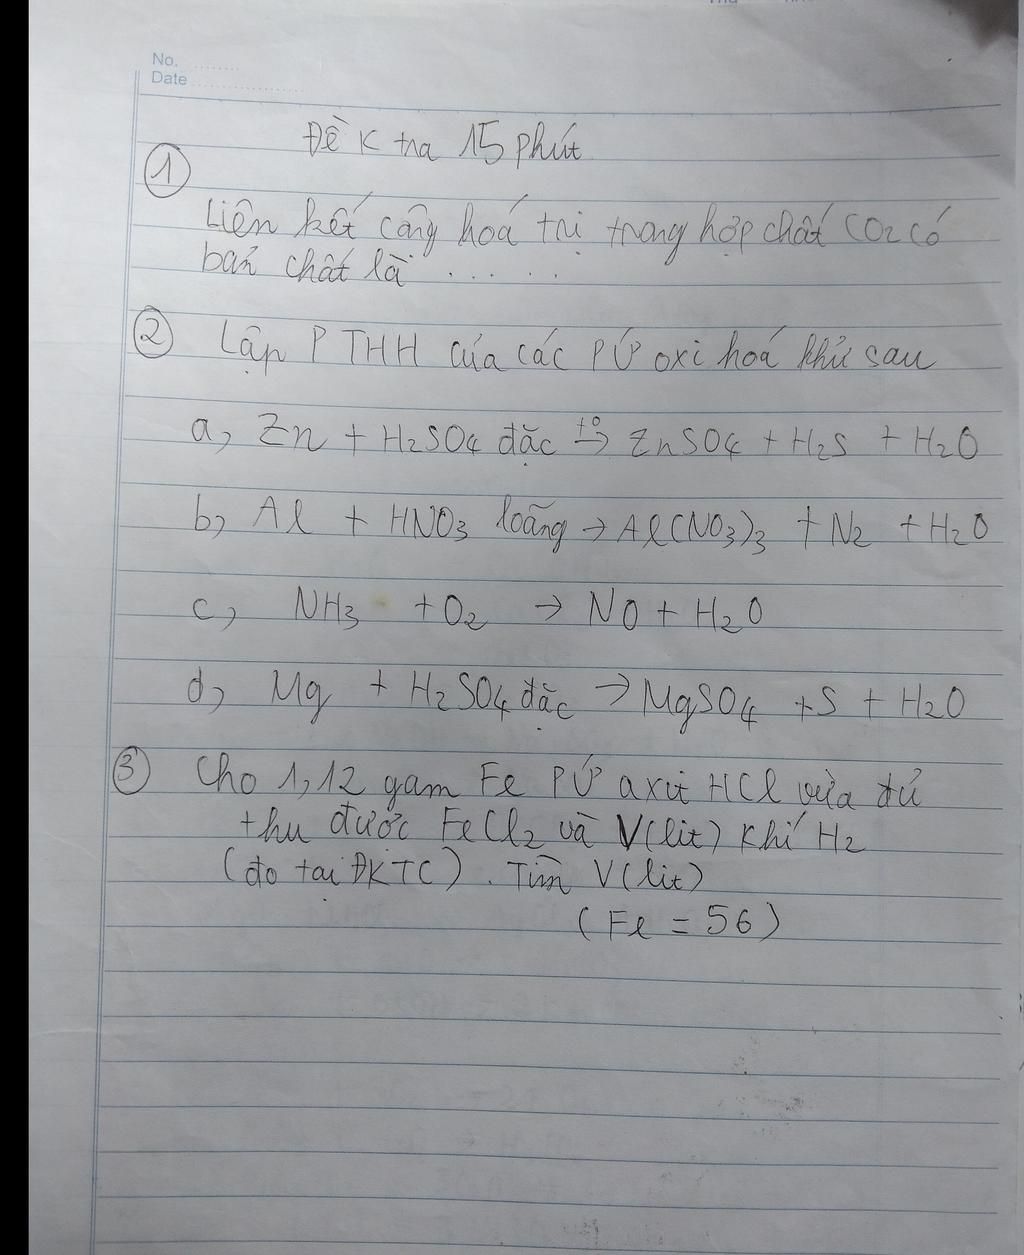 No. ........
Date ..................
Đề K tra 15 phút
① Liên kết cộng hoá trị trong hợp chất CO2 có
bản chất là ......
② Lập PTHH của các PỨ oxi hoá khử sau
a, Zn + H2SO4 đặc t° → ZnSO4 + H2S + H2O
b, Al + HNO3 loãng → Al(NO3)3 + N2 + H2O
c, NH3 + O2 → NO + H2O
d, Mg + H2SO4 đặc → MgSO4 + S + H2O
③ Cho 1,12 gam Fe PỨ axit HCl vừa đủ
thu được FeCl2 và V(lit) khí H2
(đo tại ĐKTC). Tìm V(lit)
(Fe = 56)